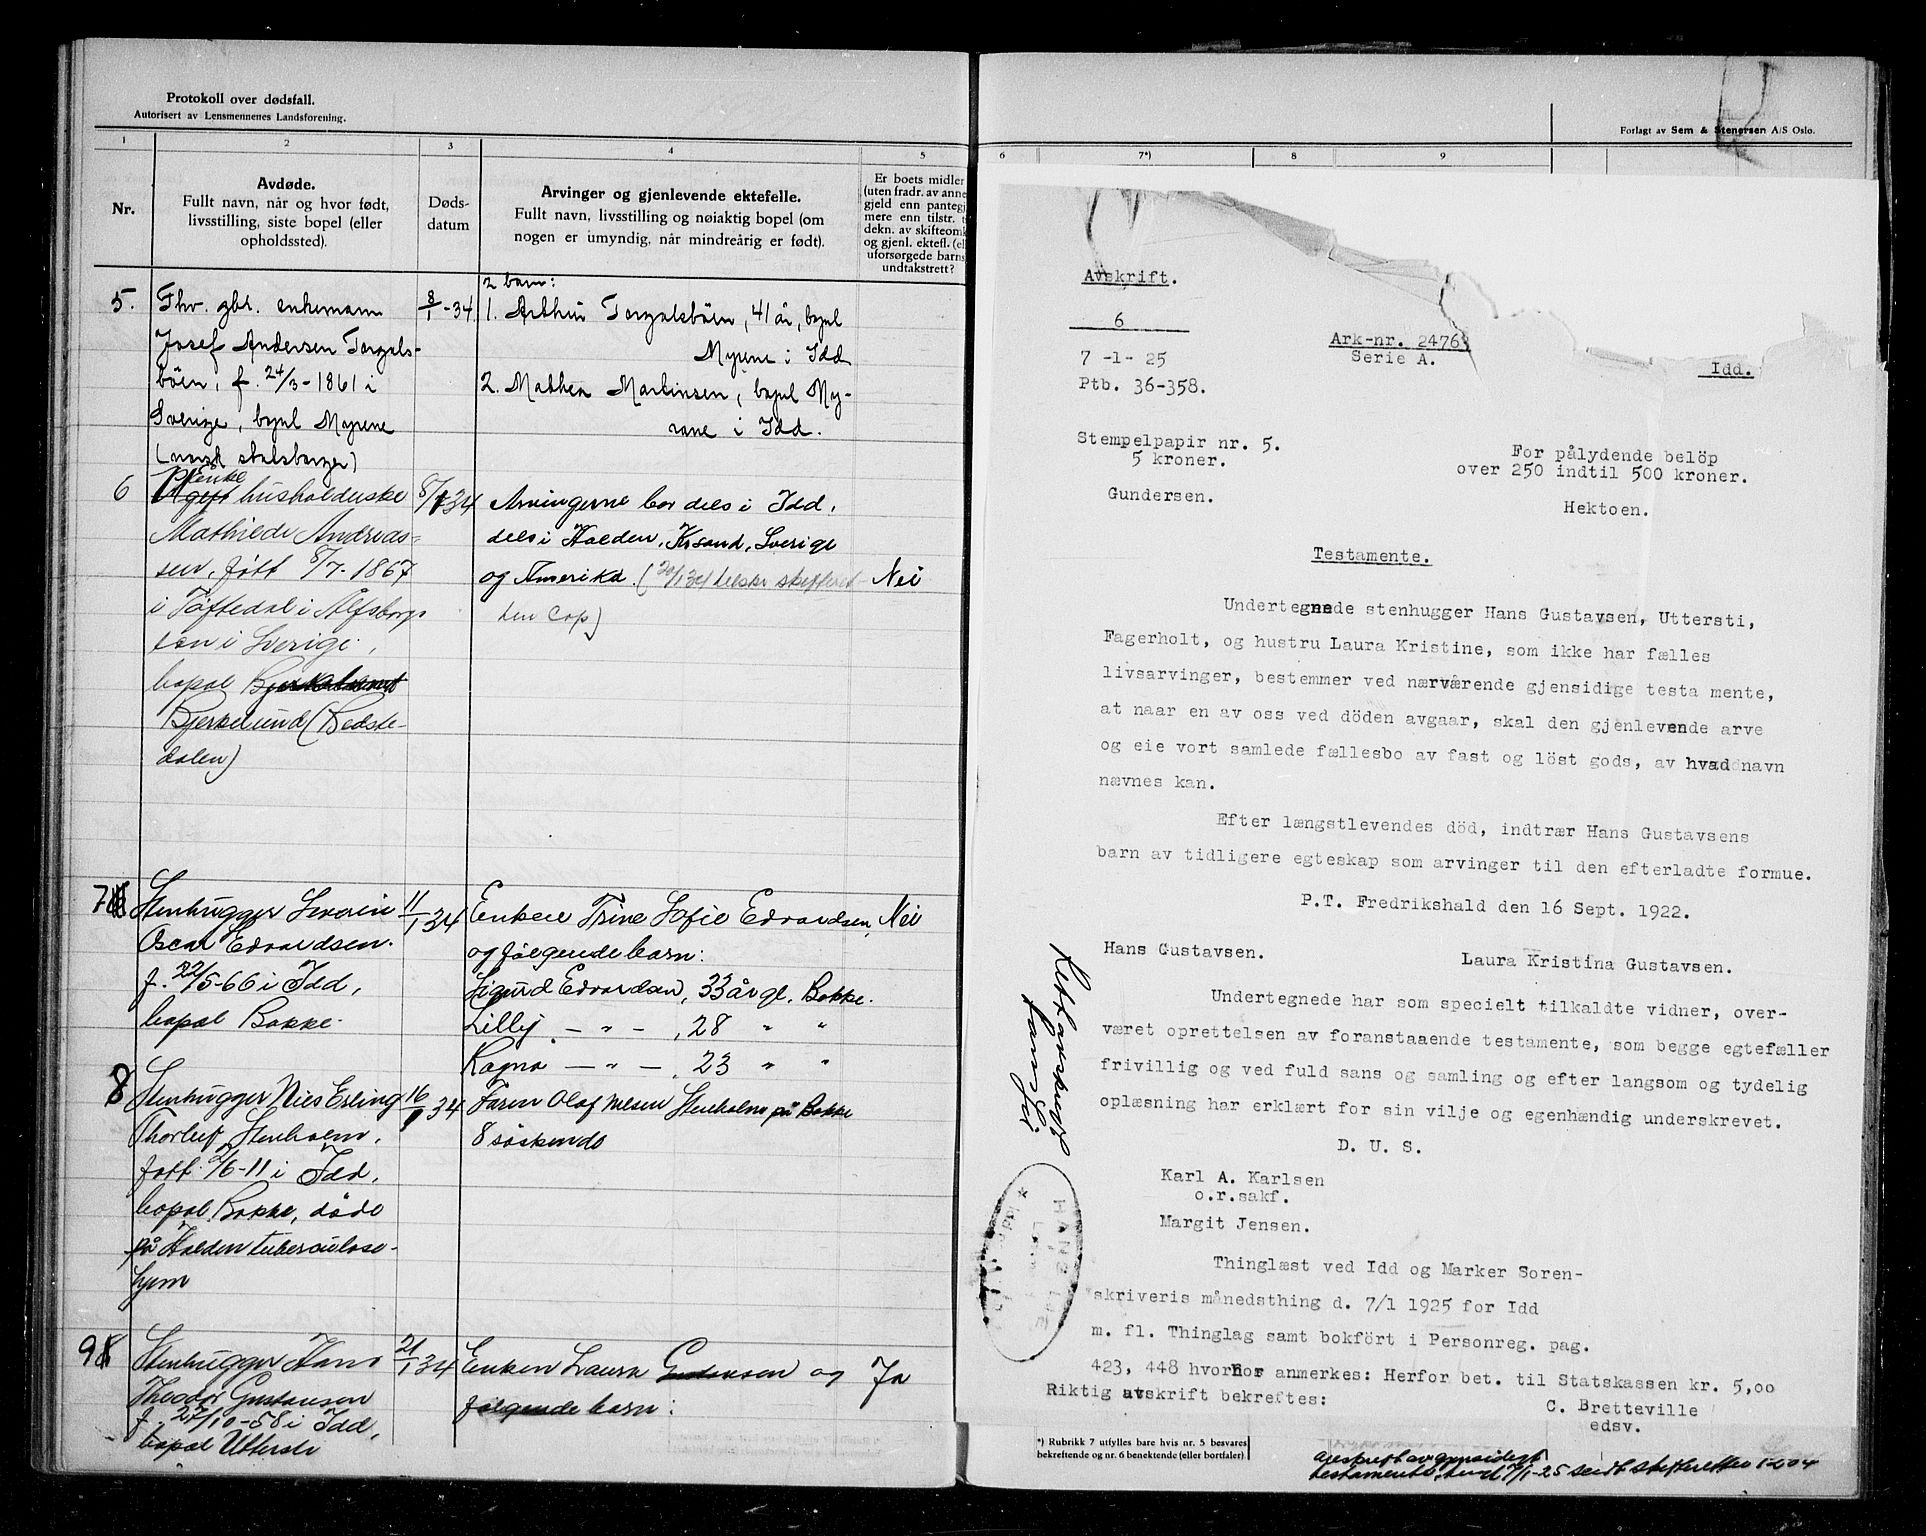 Protokoll over dødsfall.
Autorisert av Lensmennenes Landsforening.
1
2
3
4
5
Nr.
Avdøde.
Fullt navn, når og hvor født,
livsstilling, siste bopel (eller
opholdssted).
Døds-
datum
Arvinger og gjenlevende ektefelle.
Fullt navn, livsstilling og nøiaktig bopel (om
nogen er umyndig, når mindreårig er født).
Er boets midler
(uten fradr. av anne
gjeld enn pantegj
mere enn tilstr. t
dekn. av skifteomk
og gjenl. ektefl. (el
uforsørgede barns
undtakstrett?
5.
Fhv. gbr. enkemann
Josef Andersen Torgals-
böen, f. 24/3-1861 i
Sverige, bopel Myrene
(norsk statsborger)
8/1-34.
2 barn:
1. Arthur Torgalsböen, 41 år, bopel
Myrene i Idd
2. Mathea Martinsen, bopel My-
rene i Idd.
6
Enke
husholderske
Mathilde Andreas-
sen, født 8/7-1867
i Töftedal i Älfsborgs
län i Sverige,
bopel
Bjerkelund (Bedste-
dalen)
8/1 34
Arvingerne bor dels i Idd,
dels i Halden, Krsand, Sverige
og Amerika. (20/1 34
Nei
7
Stenhugger Severin
Oscar Edvardsen.
f. 22/5-66 i Idd,
bopel Bakke.
11/1 34
Enken Trine Sofie Edvardsen,
og følgende barn:
Sigurd Edvardsen, 33 år gl. Bakke.
Lilly — " — , 28 " "
Ragna — " — , 23 " "
Nei
8
Stenhugger Nils Erling
Thorleif Stenholm,
født 2/6-11 i Idd,
bopel Bakke, døde
på Halden tuberculose-
hjem
16/1 34
Faren Olaf Nilsen Stenholm på Bakke
8 søskende
9
Stenhugger Hans
Theodor Gustavsen
f. 27/10-58 i Idd,
bopel Uttersti
21/1 34
Enken Laura Gustavsen og
følgende barn:
Ja
Forlagt av Sem & Stenersen A/S Oslo.
6
7*)
8
9
Avskrift.
6
7 -1- 25
Ptb. 36-358.
Ark-nr. 2476
Serie A.
Idd.
Stempelpapir nr. 5.
5 kroner.
Gundersen.
For pålydende belöp
over 250 indtil 500 kroner.
Hektoen.
Testamente.
Undertegnede stenhugger Hans Gustavsen, Uttersti,
Fagerholt, og hustru Laura Kristine, som ikke har fælles
livsarvinger, bestemmer ved nærværende gjensidige testa mente,
at naar en av oss ved döden avgaar, skal den gjenlevende arve
og eie vort samlede fællesbo av fast og löst gods, av hvad navn
nævnes kan.
Efter længstlevendes död, indtrær Hans Gustavsens
barn av tidligere egteskap som arvinger til den efterladte formue.
P.T. Fredrikshald den 16 Sept. 1922.
Hans Gustavsen.
Laura Kristina Gustavsen.
Undertegnede har som specielt tilkaldte vidner, over-
været oprettelsen av foranstaaende testamente, som begge egtefæller
frivillig og ved fuld sans og samling og efter langsom og tydelig
oplæsning har erklært for sin vilje og egenhændig underskrevet.
D. U. S.
Karl A. Karlsen
o.r.sakf.
Margit Jensen.
Thinglæst ved Idd og Marker Soren-
skriveris månedsthing d. 7/1 1925 for Idd
m. fl. Thinglag samt bokfört i Personreg. pag.
423, 448 hvorhos anmerkes: Herfor bet. til Statskassen kr. 5,00
Riktig avskrift bekreftes:
C. Bretteville
edsv.
*) Rubrikk 7 utfylles bare hvis nr. 5 besvares
bekreftende og nr. 6 benektende (eller bortfaler)
Avskrift av gjensidigt
testamente, 7/1-25 sendt skifteretten